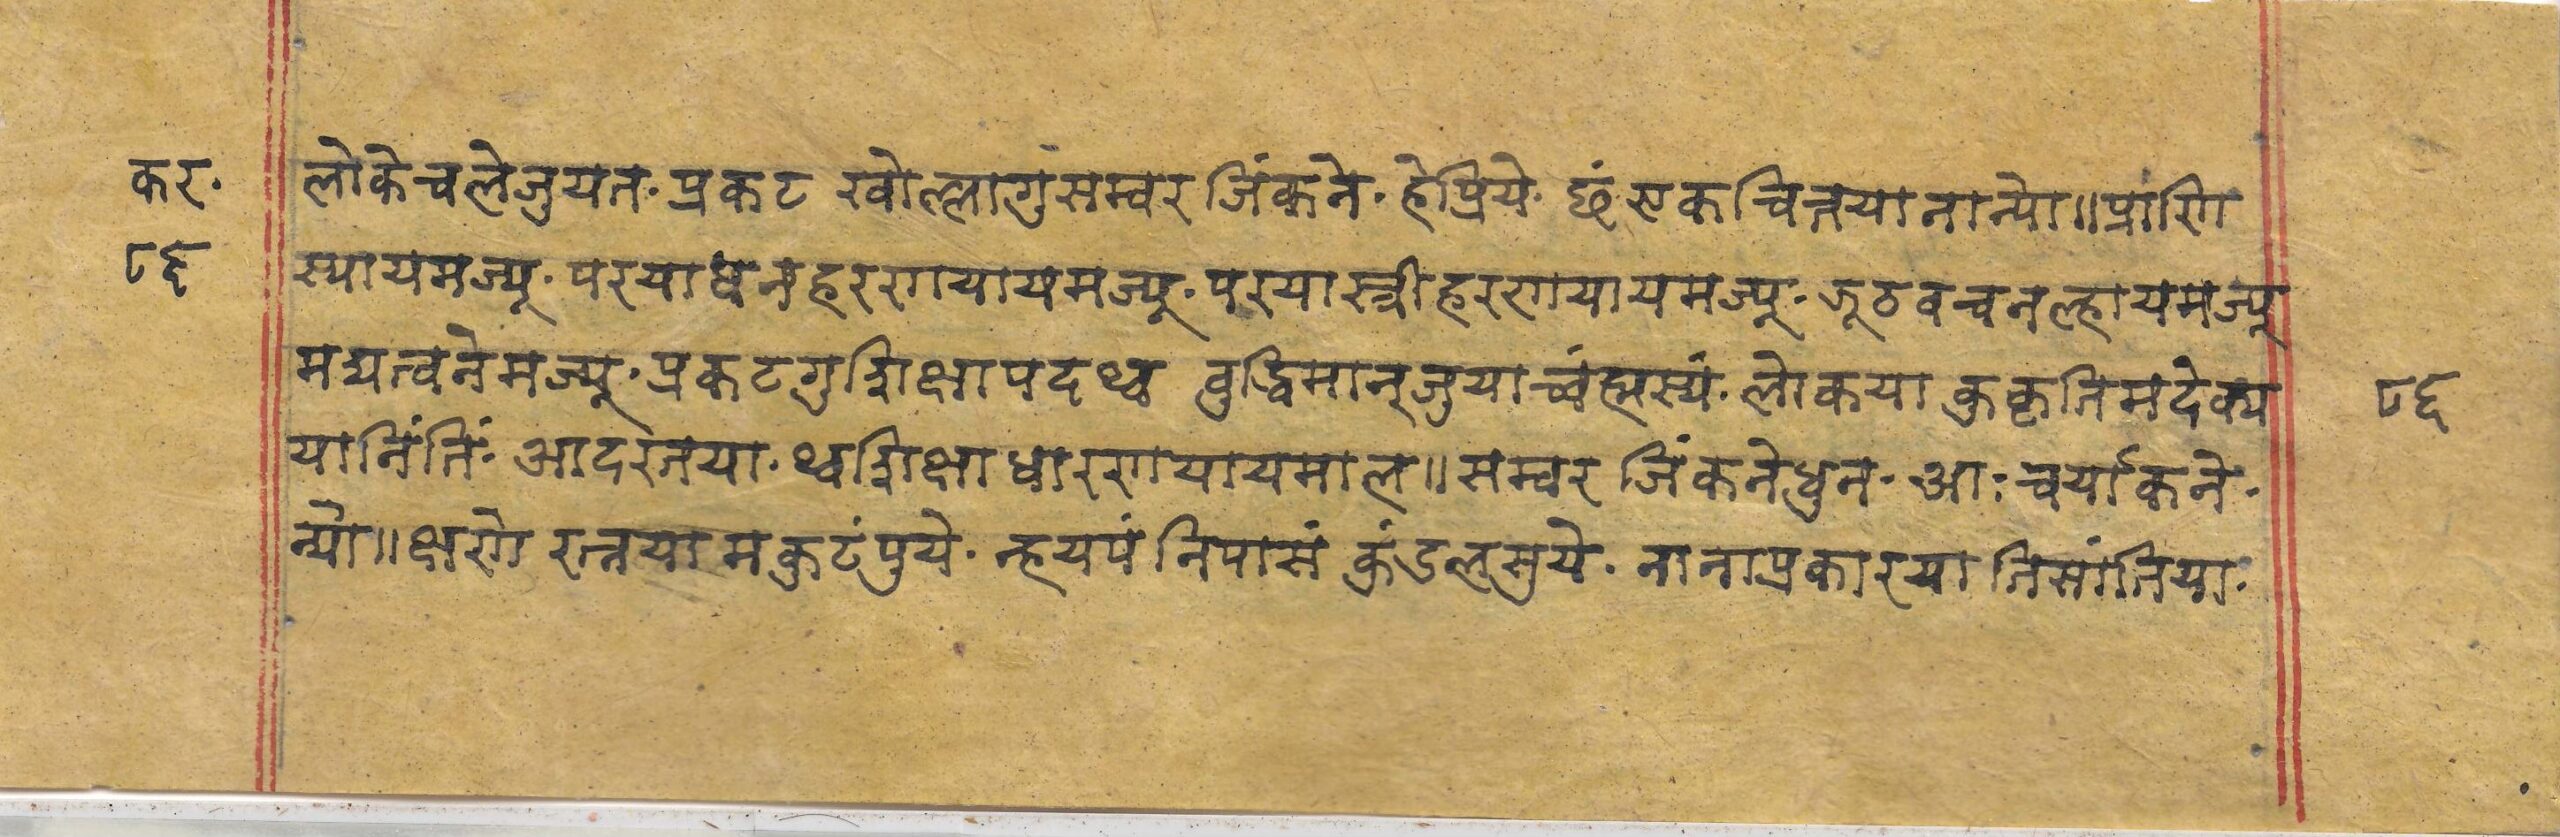 कर॰
८६
लोकेचलेजुयत॰ प्रकट खोल्लागुसम्वर जिंकने॰ हेप्रिये॰ छं एकचित्तयानान्यो॥ प्राणि
स्यायमज्यू॰ परयाधनहरणयायमज्यू॰ परयास्त्रीहरणयायमज्यू॰ झूठवचनल्हायमज्यू
मद्यत्वनेमज्यू॰ प्रकटगुशिक्षापदथ्व बुद्धिमान्जुयाच्वंह्मस्यं॰ लोकया कुकृतिमदेक्य
यानिंतिं॰ आदरतया॰ थ्वशिक्षाधारणयायमाल॥ सम्वर जिंकनेधुन॰ आः चर्याकने॰
न्यो॥ क्षणे रत्नया मकुटंपुये॰ न्हयपं निपासं कुंडलंसुये॰ नानाप्रकारया तिसांतिया॰
८६